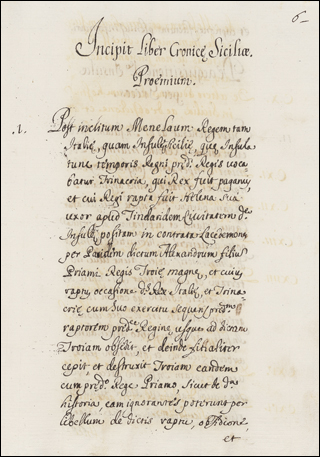 6
Incipit Liber Cronicę Siciliæ.
Proemium.
1. Post inclitum Menelaum Regem tam
Italię, quam Insulę Sicilię, quę Insula
tunc temporis Regni pręd. Regis voca
batur Trinacria, qui Rex fuit paganus,
et cui Regi rapta fuit Helena sua
uxor apud Tindaridem Civitatem d.
Insulę positam in contrata Lacedemonię
per Paridem dictum Alexandrum filius
Priami Regis Troię magnę, et cuius
raptus occasione d. Rex Italię, et Trina-
crię cum suo exercitu sequens pręd.m
raptorem pręd.ę Reginę usque ad dictam
Troiam obsedit, et deinde filialiter
cepit, et destruxit Troiam eandem
cum pręd.o Rege Priamo, sicut de d.a
historia, eam ignorantes poterunt per
libellum de dictis raptu, obsidione,
et